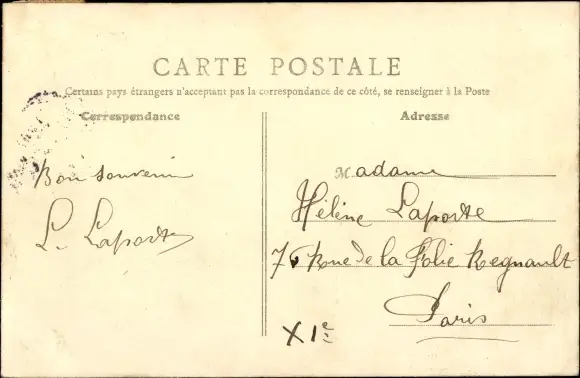 CARTE POSTALE
Certains pays étrangers n'acceptant pas la correspondance de ce côté, se renseigner à la Poste
Correspondance
Bon souvenir
L. Laporte
Adresse
Madame
Hélène Laporte
Rue de la Folie Regnault
Paris
XIe